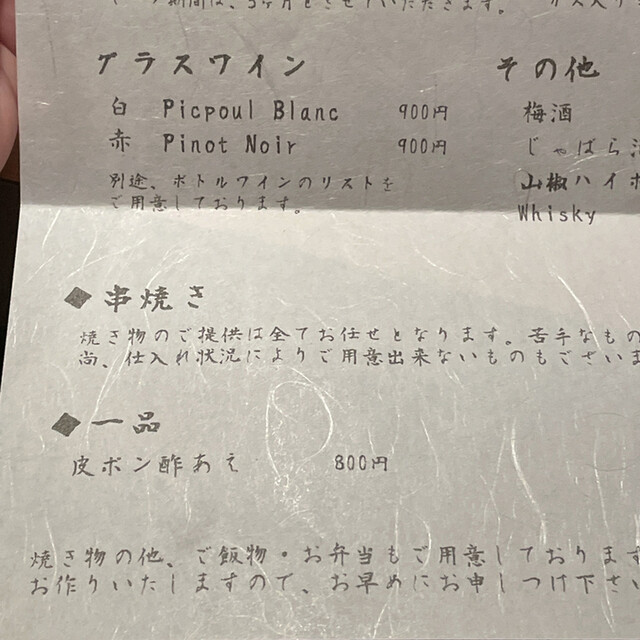 期間は、3ヶ月とさせていただきます。
グラスワイン
白 Picpoul Blanc 900円
赤 Pinot Noir 900円
別途、ボトルワインのリストを
ご用意しております。
その他
梅酒
じゃばら
山椒ハイボ
Whisky
◆串焼き
焼き物のご提供は全てお任せとなります。苦手なもの
尚、仕入れ状況によりご用意出来ないものもございま
◆一品
皮ポン酢あえ 800円
焼き物の他、ご飯物・お弁当もご用意しております
お作りいたしますので、お早めにお申しつけ下さい